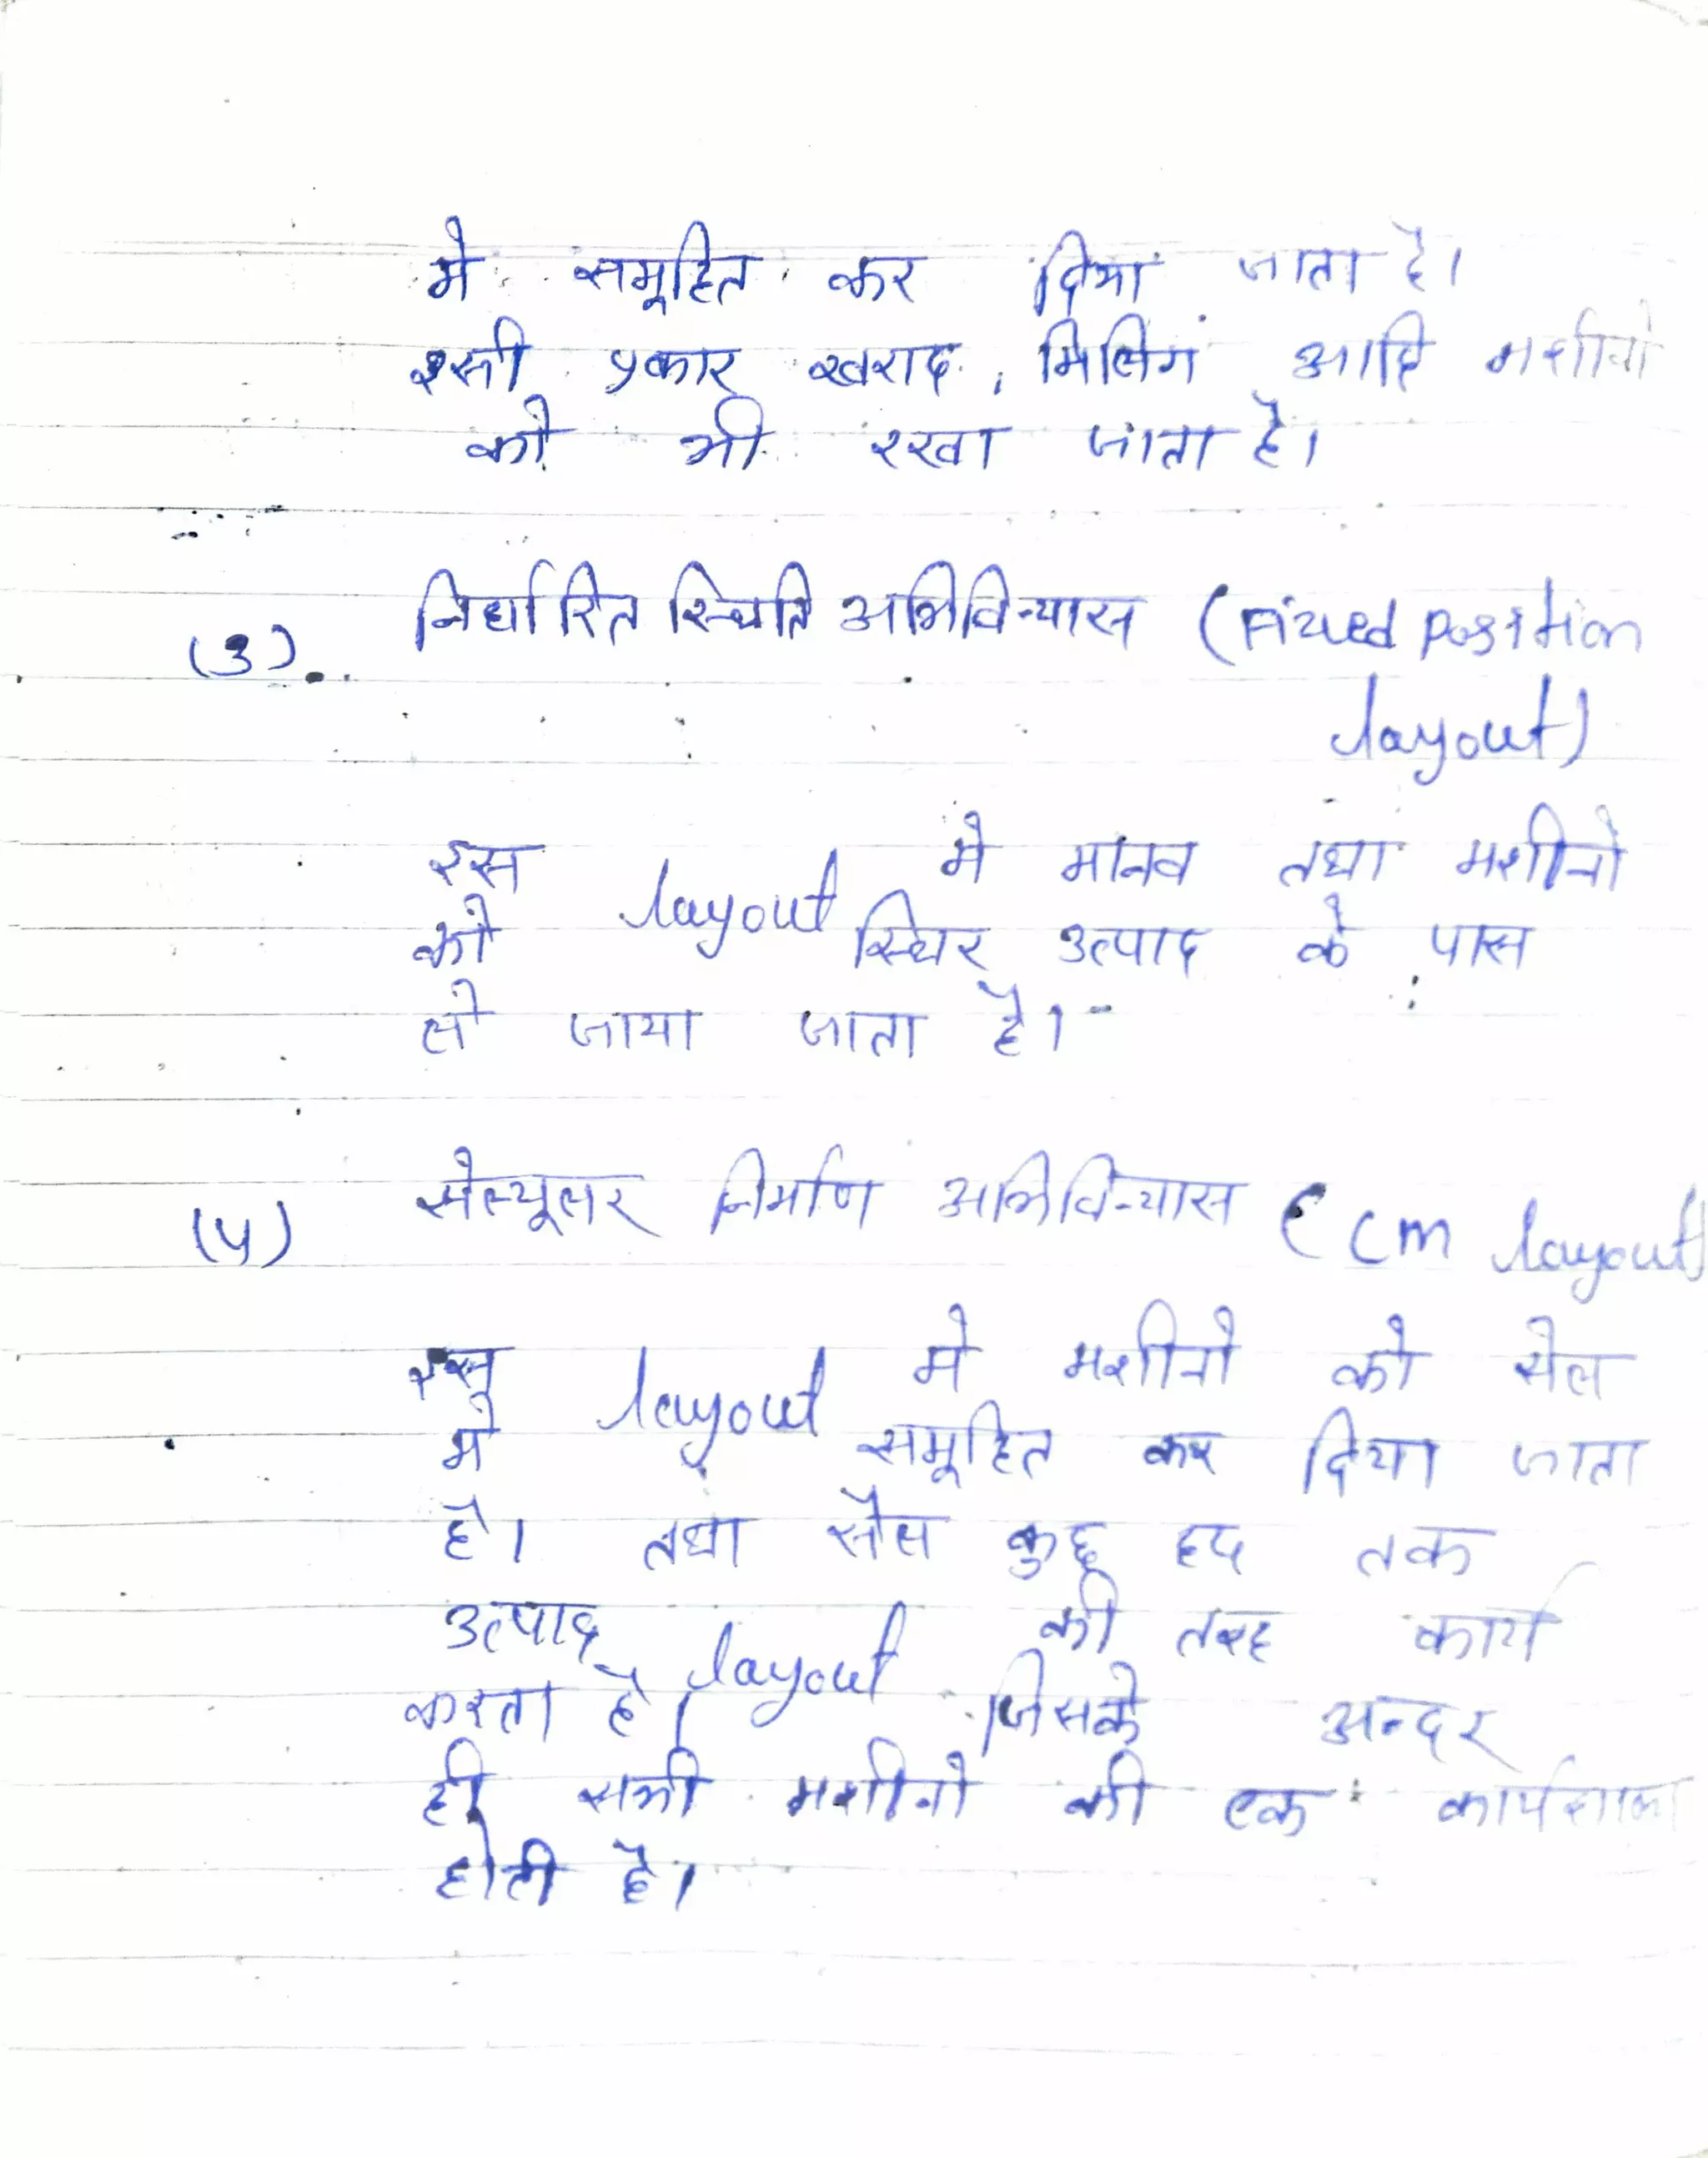 मे समूहित कर दिया जाता है।
इसी प्रकार खराद, मिलिंग आदि मशीनो
को भी रखा जाता है।
(3) निर्धारित स्थिति अभिविन्यास (Fixed position
layout)
इस layout मे मानव तथा मशीनो
को स्थिर उत्पाद के पास
ले जाया जाता है।
(4) सेल्यूलर निर्माण अभिविन्यास (CM layout)
इस layout मे मशीनो को सेल
मे समूहित कर दिया जाता
है। तथा सेल कुछ हद तक
उत्पाद layout की तरह कार्य
करता है। जिसके अन्दर
ही सभी मशीनो की एक कार्यशाला
होती है।